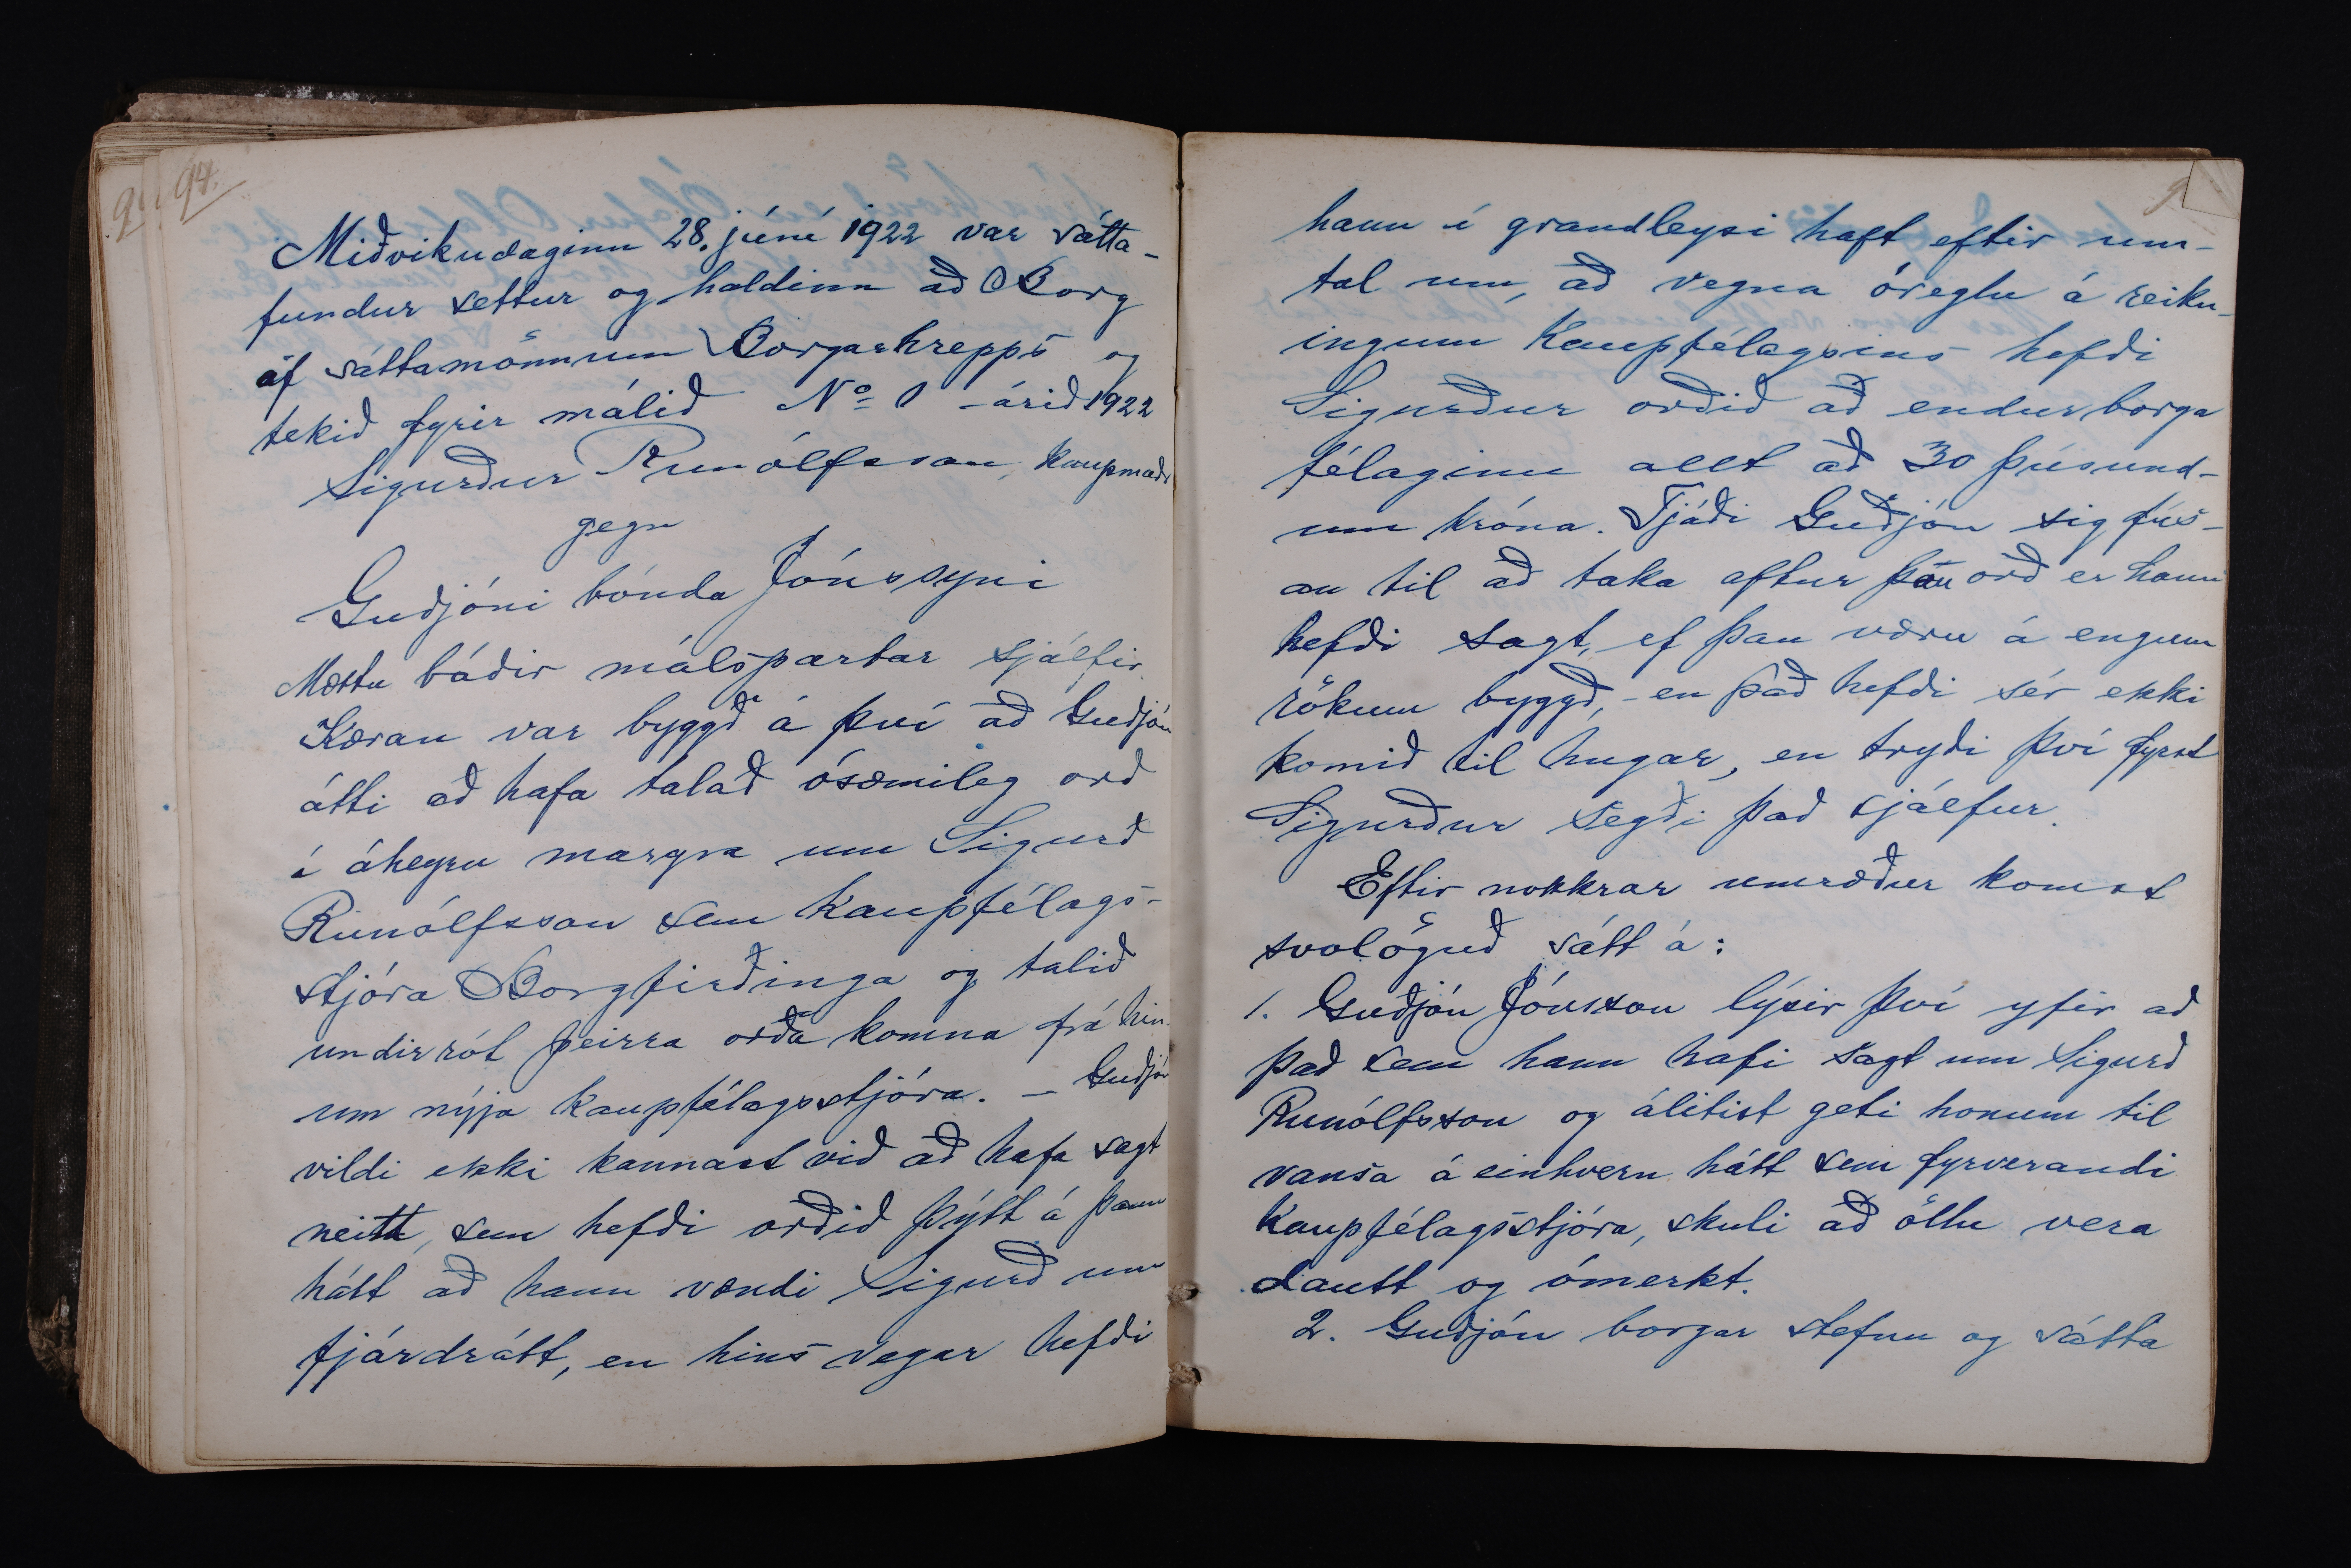 94.
Miðvikudaginn 28. júní 1922 var sátta-
fundur settur og haldinn að Borg
af sáttamönnum Borgarhrepps og
tekið fyrir málið No 1 - árið 1922
Sigurður Runólfsson, kaupmaðr
gegn
Guðjóni bónda Jónssyni
Mættu báðir málspartar sjálfir.
Kæran var byggð á því að Guðjón
átti að hafa talað ósæmileg orð
í áheyrn margra um Sigurð
Runólfsson sem kaupfélags-
stjóra Borgfirðinga og talið
undirrót þeirra orða komna frá hin-
um nýja kaupfélagsstjóra. - Guðjón
vildi ekki kannast við að hafa sagt
neitt, sem hefði orðið þýtt á þann
hátt að hann vændi Sigurð um
fjárdrátt, en hins vegar hefði
9
hann í grandleysi haft eftir um-
tal um, að vegna óreglu á reikn-
ingum Kaupfélagsins hefði
Sigurður orðið að endurborga
félaginu allt að 30 þúsund-
um króna. Tjáði Guðjón sig fús-
an til að taka aftur þau orð er hann
hefði sagt, ef þau væru á engum
rökum byggð, - en það hefði sér ekki
komið til hugar, en tryði því fyrst
Sigurður segði það sjálfur.
Eftir nokkrar umræður komst
svolöguð sátt á:
1. Guðjón Jónsson lýsir því yfir að
það sem hann hafi sagt um Sigurð
Runólfsson og álitist geti honum til
vansa á einhvern hátt sem fyrverandi
kaupfélagsstjóra, skuli að öllu vera
dautt og ómerkt.
2. Guðjón borgar stefnu og sátta